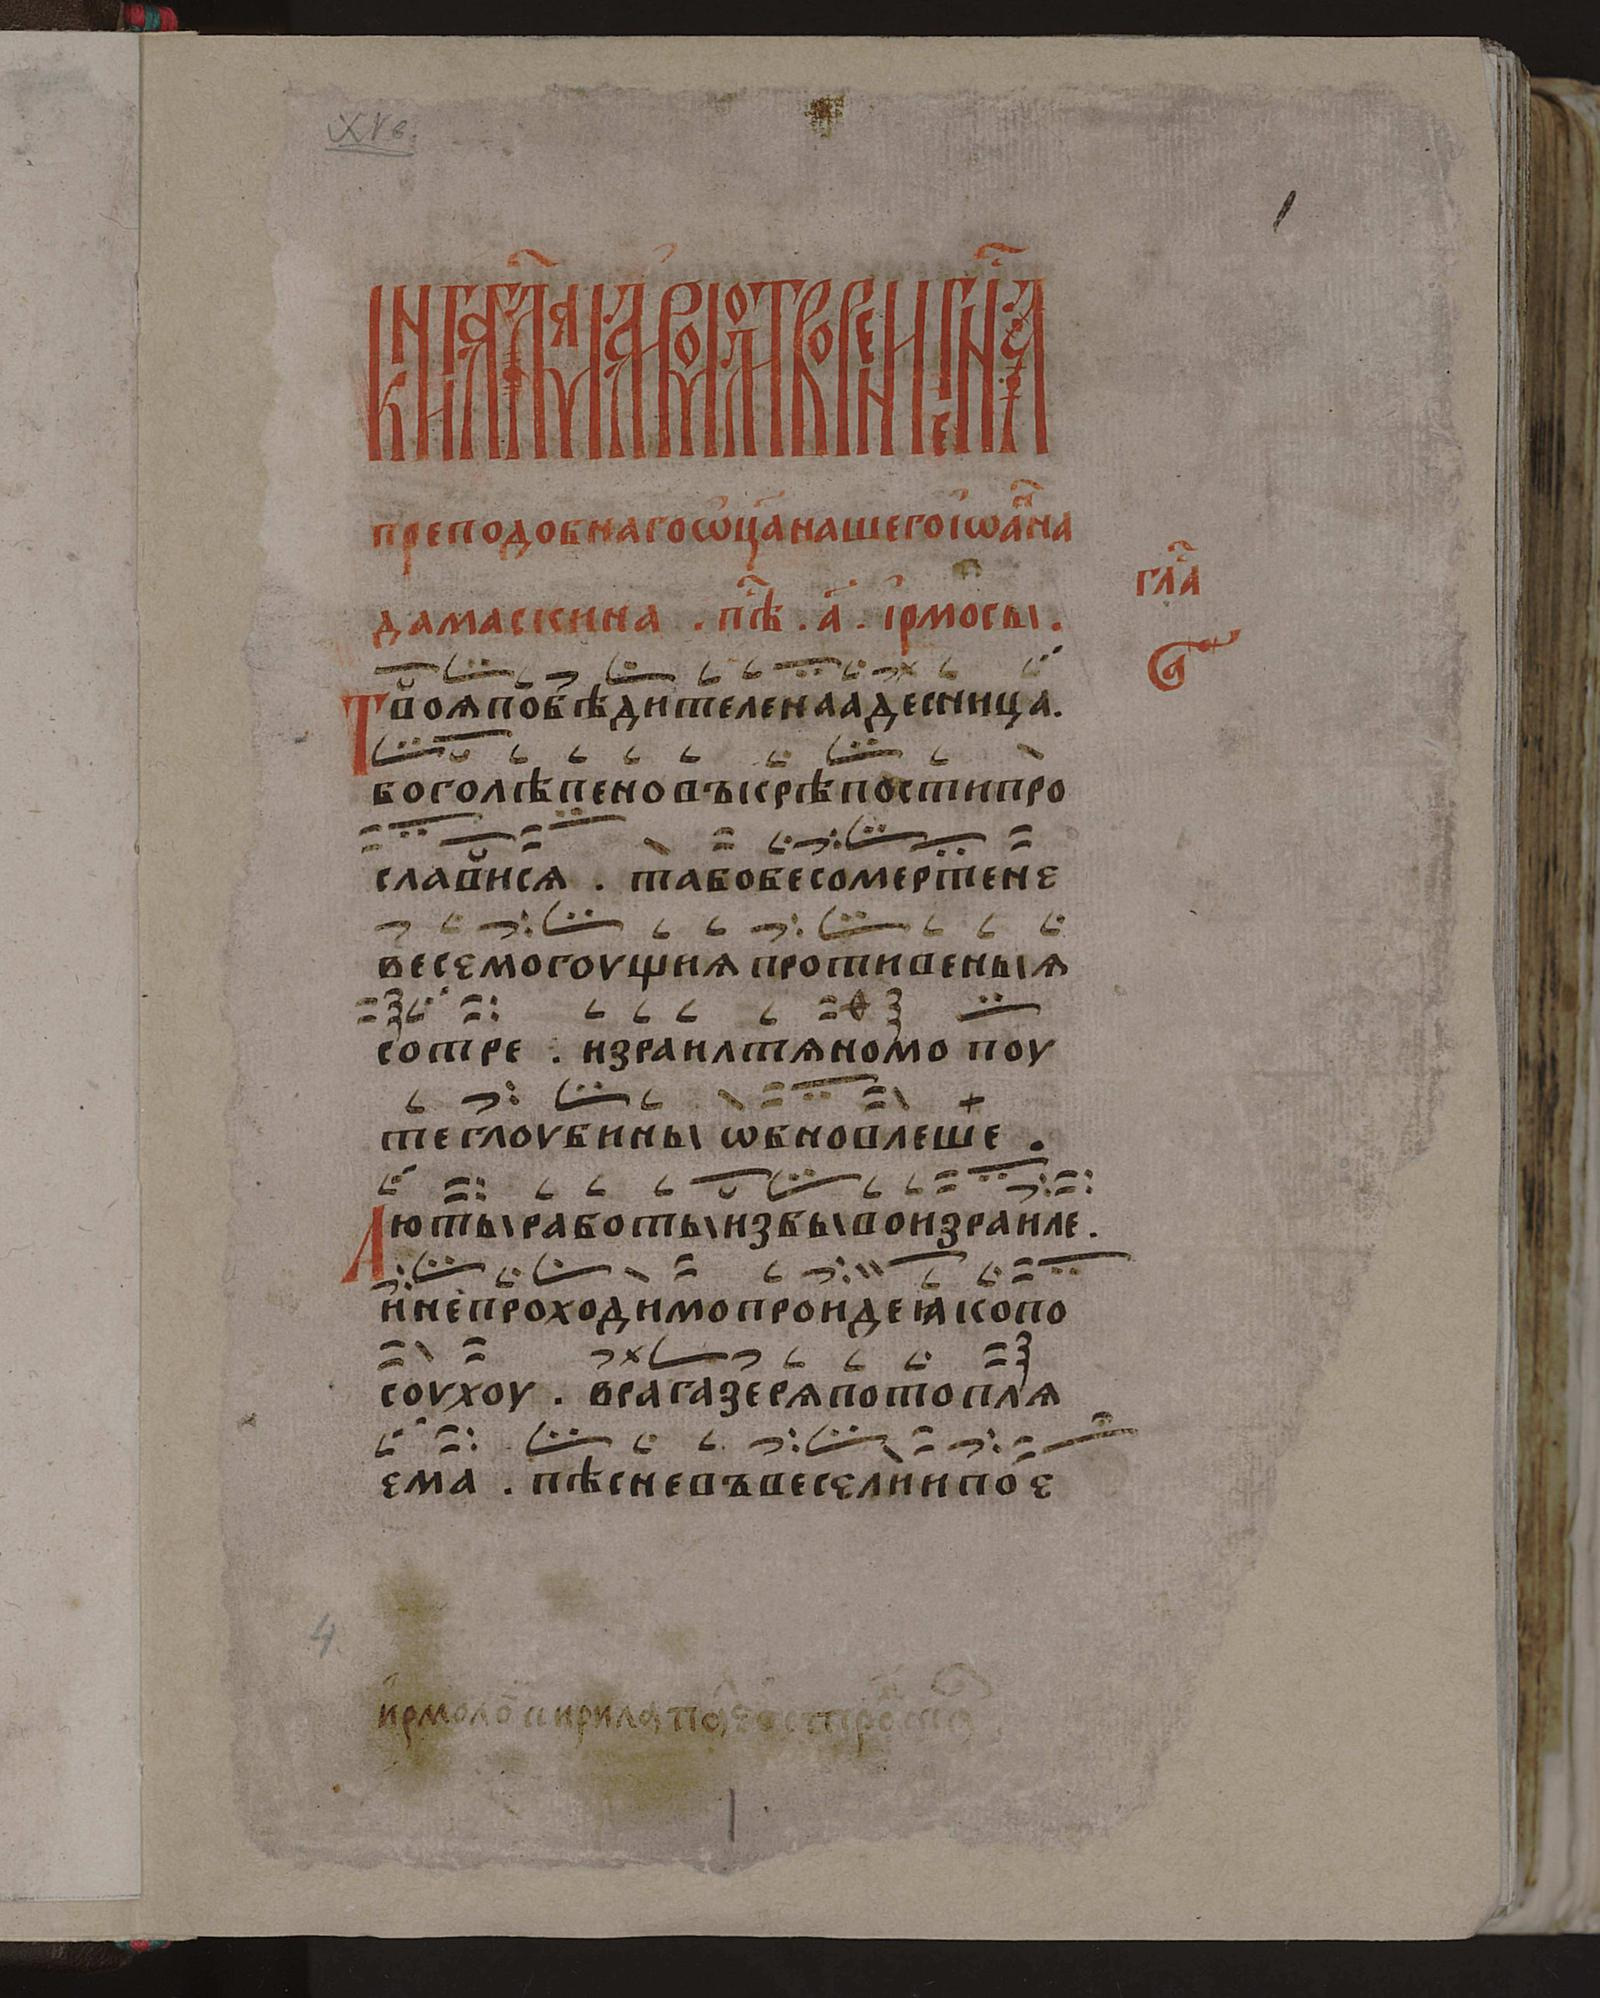 XV в.
1
КНИГА ГЛАГОЛЕМАЯ ИРМОЛОИ ТВОРЕНИЕ
преподобнаго ѡц҃а нашего іѡанна
дамаскина . пѣ . а҃ . ірмосы .
гла
а҃
Твоѧ побѣдителенаа десница .
боголѣпено въ крѣпости про
слависѧ . та бо бесомертене
весемогоущиѧ противеныѧ
сотре . израилтѧномо поу
те глоубины ѡбновлеше .
Люты работы избыво израиле .
и непроходимо проиде ꙗко по
соухоу . врага зерѧ потоплѧ
ема . пѣсне въ веселии пое
4
ирмоло кирила